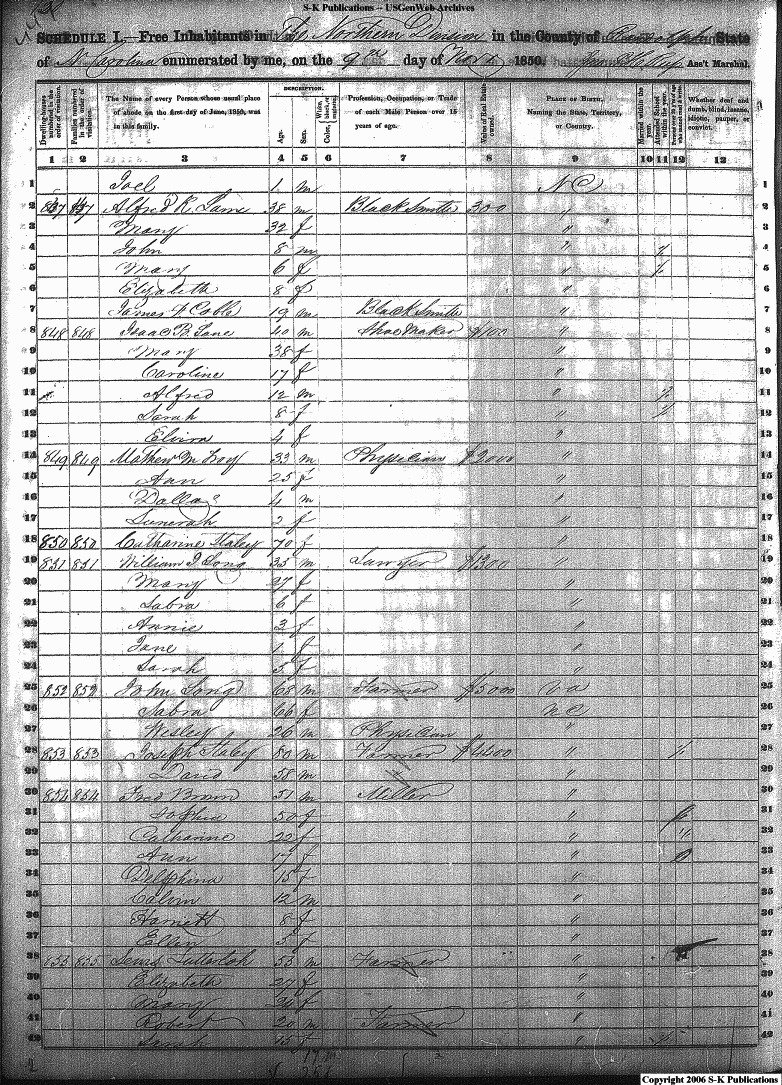 S-K Publications -- USGenWeb Archives
SCHEDULE I.—Free Inhabitants in The Northern Division in the County of State
of N. Carolina enumerated by me, on the 9th day of 1850. Ass't Marshal.
Dwelling-houses numbered in the order of visitation.
Families numbered in the order of visitation.
The Name of every Person whose usual place of abode on the first day of June, 1850, was in this family.
DESCRIPTION.
Age.
Sex.
White, black, or mulatto.
Color,
Profession, Occupation, or Trade of each Male Person over 15 years of age.
Value of Real Estate owned.
PLACE OF BIRTH, Naming the State, Territory, or Country.
Married within the year.
Attended School within the year.
Whether deaf and dumb, blind, insane, idiotic, pauper, or convict.
1 2 3 4 5 6 7 8 9 10 11 12 13
1 Joel 1 m NC 1
2 Alfred R. Lane 38 m Black Smith 300 " 2
3 Mary 32 f " 3
4 John 8 m " 4
5 Mary 6 f " 5
6 Elizabeth 8 f " 6
7 James Coble 19 m Black Smith " 7
8 848 848 Isaac B. Lane 40 m Shoe Maker $100 " 8
9 Mary 38 f " 9
10 Caroline 17 f " 10
11 Alfred 12 m " 11
12 Sarah 8 f " 12
13 Elvira 4 f " 13
14 849 849 Mathew M 33 m Physician $2000 " 14
15 Ann 25 f " 15
16 Dallas 4 m " 16
17 2 f " 17
18 850 850 Catharine Staley 70 f " 18
19 851 851 William J. Long 35 m Lawyer $1300 " 19
20 Mary 27 f " 20
21 Sabra 6 f " 21
22 Annie 3 f " 22
23 Jane 1 f " 23
24 Sarah 5 f " 24
25 852 852 John Long 68 m Farmer $5000 Va 25
26 Sabra 66 f NC 26
27 Wesley 26 m Physician " 27
28 853 853 Joseph Staley 80 m Farmer $1400 " 28
29 David 38 m " 29
30 854 854 Fred Brown 51 m Miller " 30
31 Sophia 50 f " 31
32 Catharine 22 f " 32
33 Ann 17 f " 33
34 Delphina 15 f " 34
35 Calvin 12 m " 35
36 Harriett 8 f " 36
37 Ellen 5 f " 37
38 855 855 Lewis 53 m Farmer " 38
39 Elizabeth 27 f " 39
40 Mary 24 f " 40
41 Robert 20 m Farmer " 41
42 Sarah 15 f " 42
Copyright 2006 S-K Publications